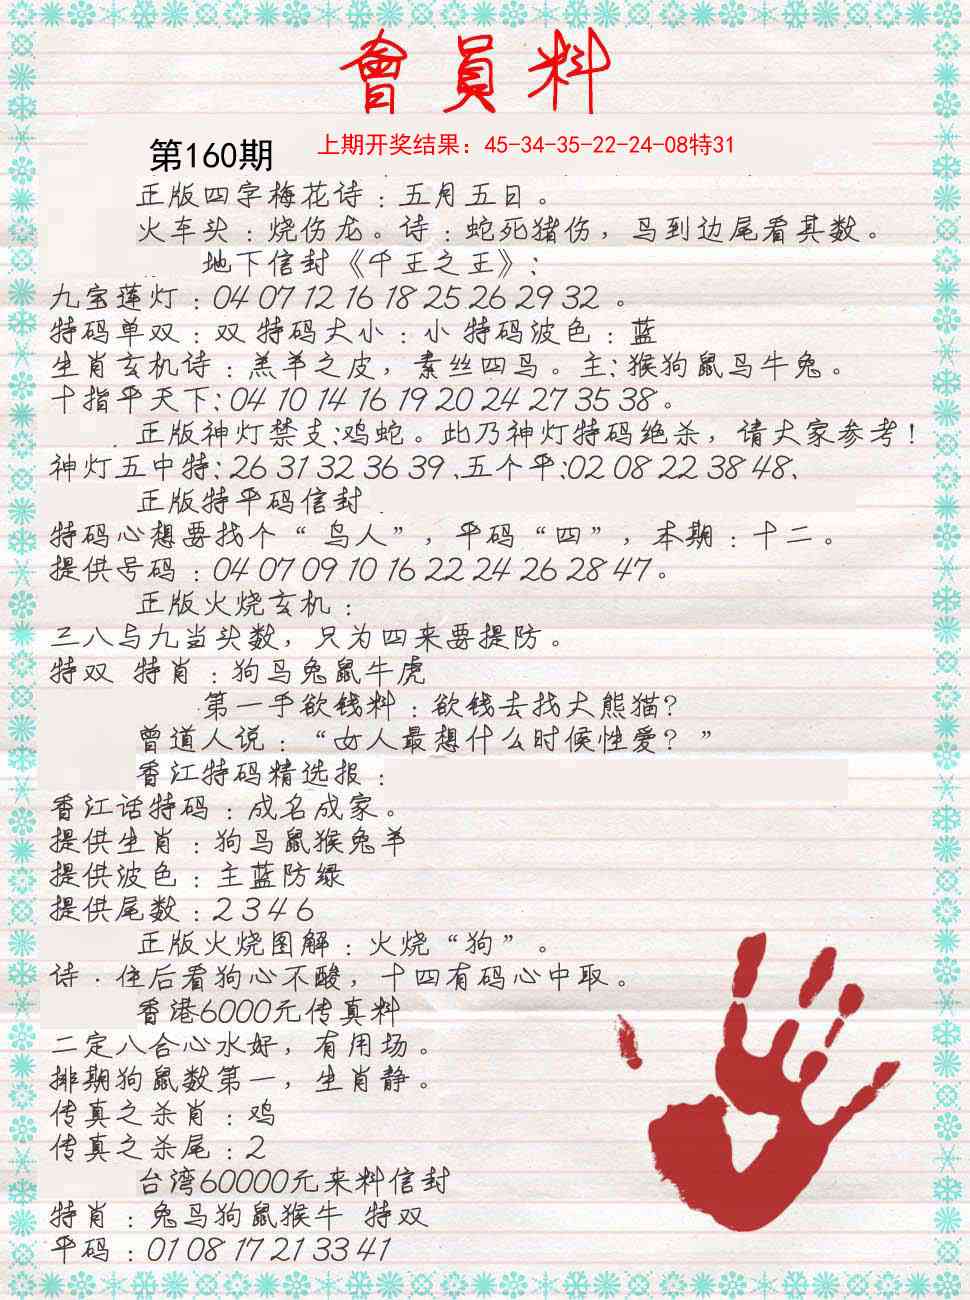 會員料
第160期 上期开奖结果：45-34-35-22-24-08特31
正版四字梅花诗：五月五日。
火车头：烧伤龙。诗：蛇死猪伤，马到边尾看其数。
地下信封《千王之王》：
九宝莲灯：04 07 12 16 18 25 26 29 32 。
特码单双：双 特码大小：小 特码波色：蓝
生肖玄机诗：羔羊之皮，素丝四马。主：猴狗鼠马牛兔。
十指平天下：04 10 14 16 19 20 24 27 35 38。
正版神灯禁支：鸡蛇。此乃神灯特码绝杀，请大家参考！
神灯五中特：26 31 32 36 39 、五个平：02 08 22 38 48、
正版特平码信封
特码心想要找个“鸟人”，平码“四”，本期：十二。
提供号码：04 07 09 10 16 22 24 26 28 47。
正版火烧玄机：
三八与九当头数，只为四来要提防。
特双 特肖：狗马兔鼠牛虎
第一手欲钱料：欲钱去找大熊猫？
曾道人说：“女人最想什么时候性爱？”
香江特码精选报：
香江话特码：成名成家。
提供生肖：狗马鼠猴兔羊
提供波色：主蓝防绿
提供尾数：2 3 4 6
正版火烧图解：火烧“狗”。
诗·住后看狗心不酸，十四有码心中取。
香港6000元传真料
二定八合心水好，有用场。
排期狗鼠数第一，生肖静。
传真之杀肖：鸡
传真之杀尾：2
台湾60000元来料信封
特肖：兔马狗鼠猴牛 特双
平码：01 08 17 21 33 41